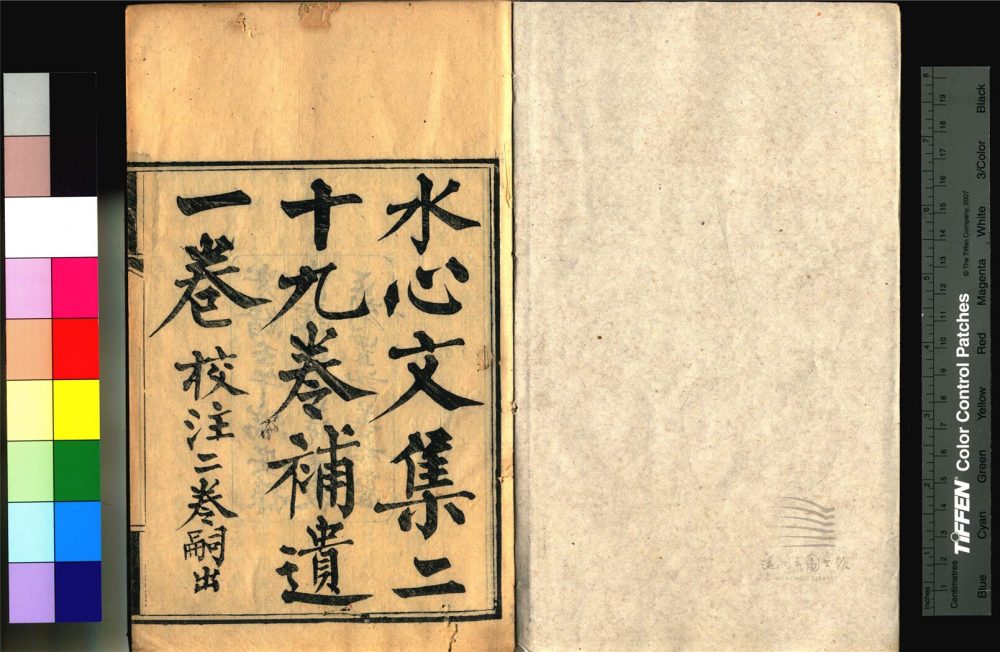 水心文集二
十九卷補遺
一卷 校注二卷嗣出
溫州市圖書館
WENZHOU LIBRARY
TIFFEN Color Control Patches
© The Tiffen Company, 2007
Inches
1 2 3 4 5 6 7 8
Centimetres
1 2 3 4 5 6 7 8 9 10 11 12 13 14 15 16 17 18 19
Blue Cyan Green Yellow Red Magenta White 3/Color Black